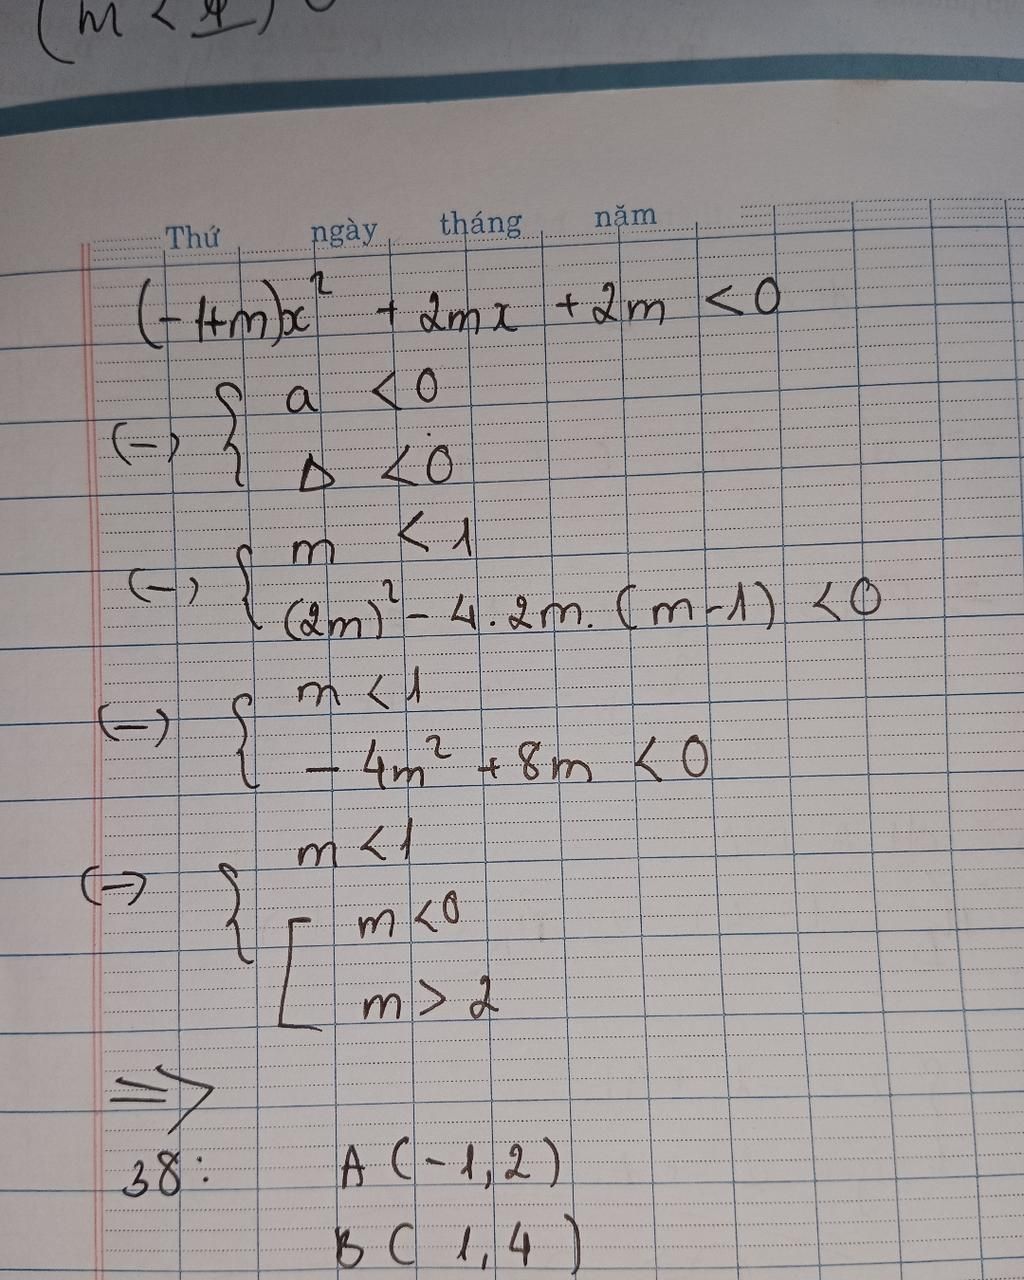 (m < 1)
Thứ ngày tháng năm
(-1+m)x² + 2mx + 2m < 0
(-) { a < 0
Δ < 0
(-) { m < 1
(2m)² - 4.2m.(m-1) < 0
(-) { m < 1
- 4m² + 8m < 0
(-) { m < 1
[ m < 0
m > 2
=>
38: A (-1,2)
B ( 1,4 )